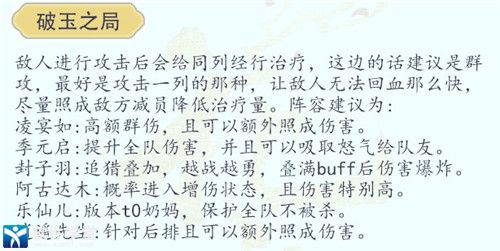 破玉之局
敌人进行攻击后会给同列经行治疗，这边的话建议是群
攻，最好是攻击一列的那种，让敌人无法回血那么快，
尽量照成敌方减员降低治疗量。阵容建议为：
凌宴如:高额群伤，且可以额外照成伤害。
季元启:提升全队伤害，并且可以吸取怒气给队友。
封子羽:追猎叠加，越战越勇，叠满buff后伤害爆炸。
阿古达木:概率进入增伤状态，且伤害特别高。
乐仙儿:版本t0奶妈，保护全队不被杀。
先生:针对后排且可以额外照成伤害。